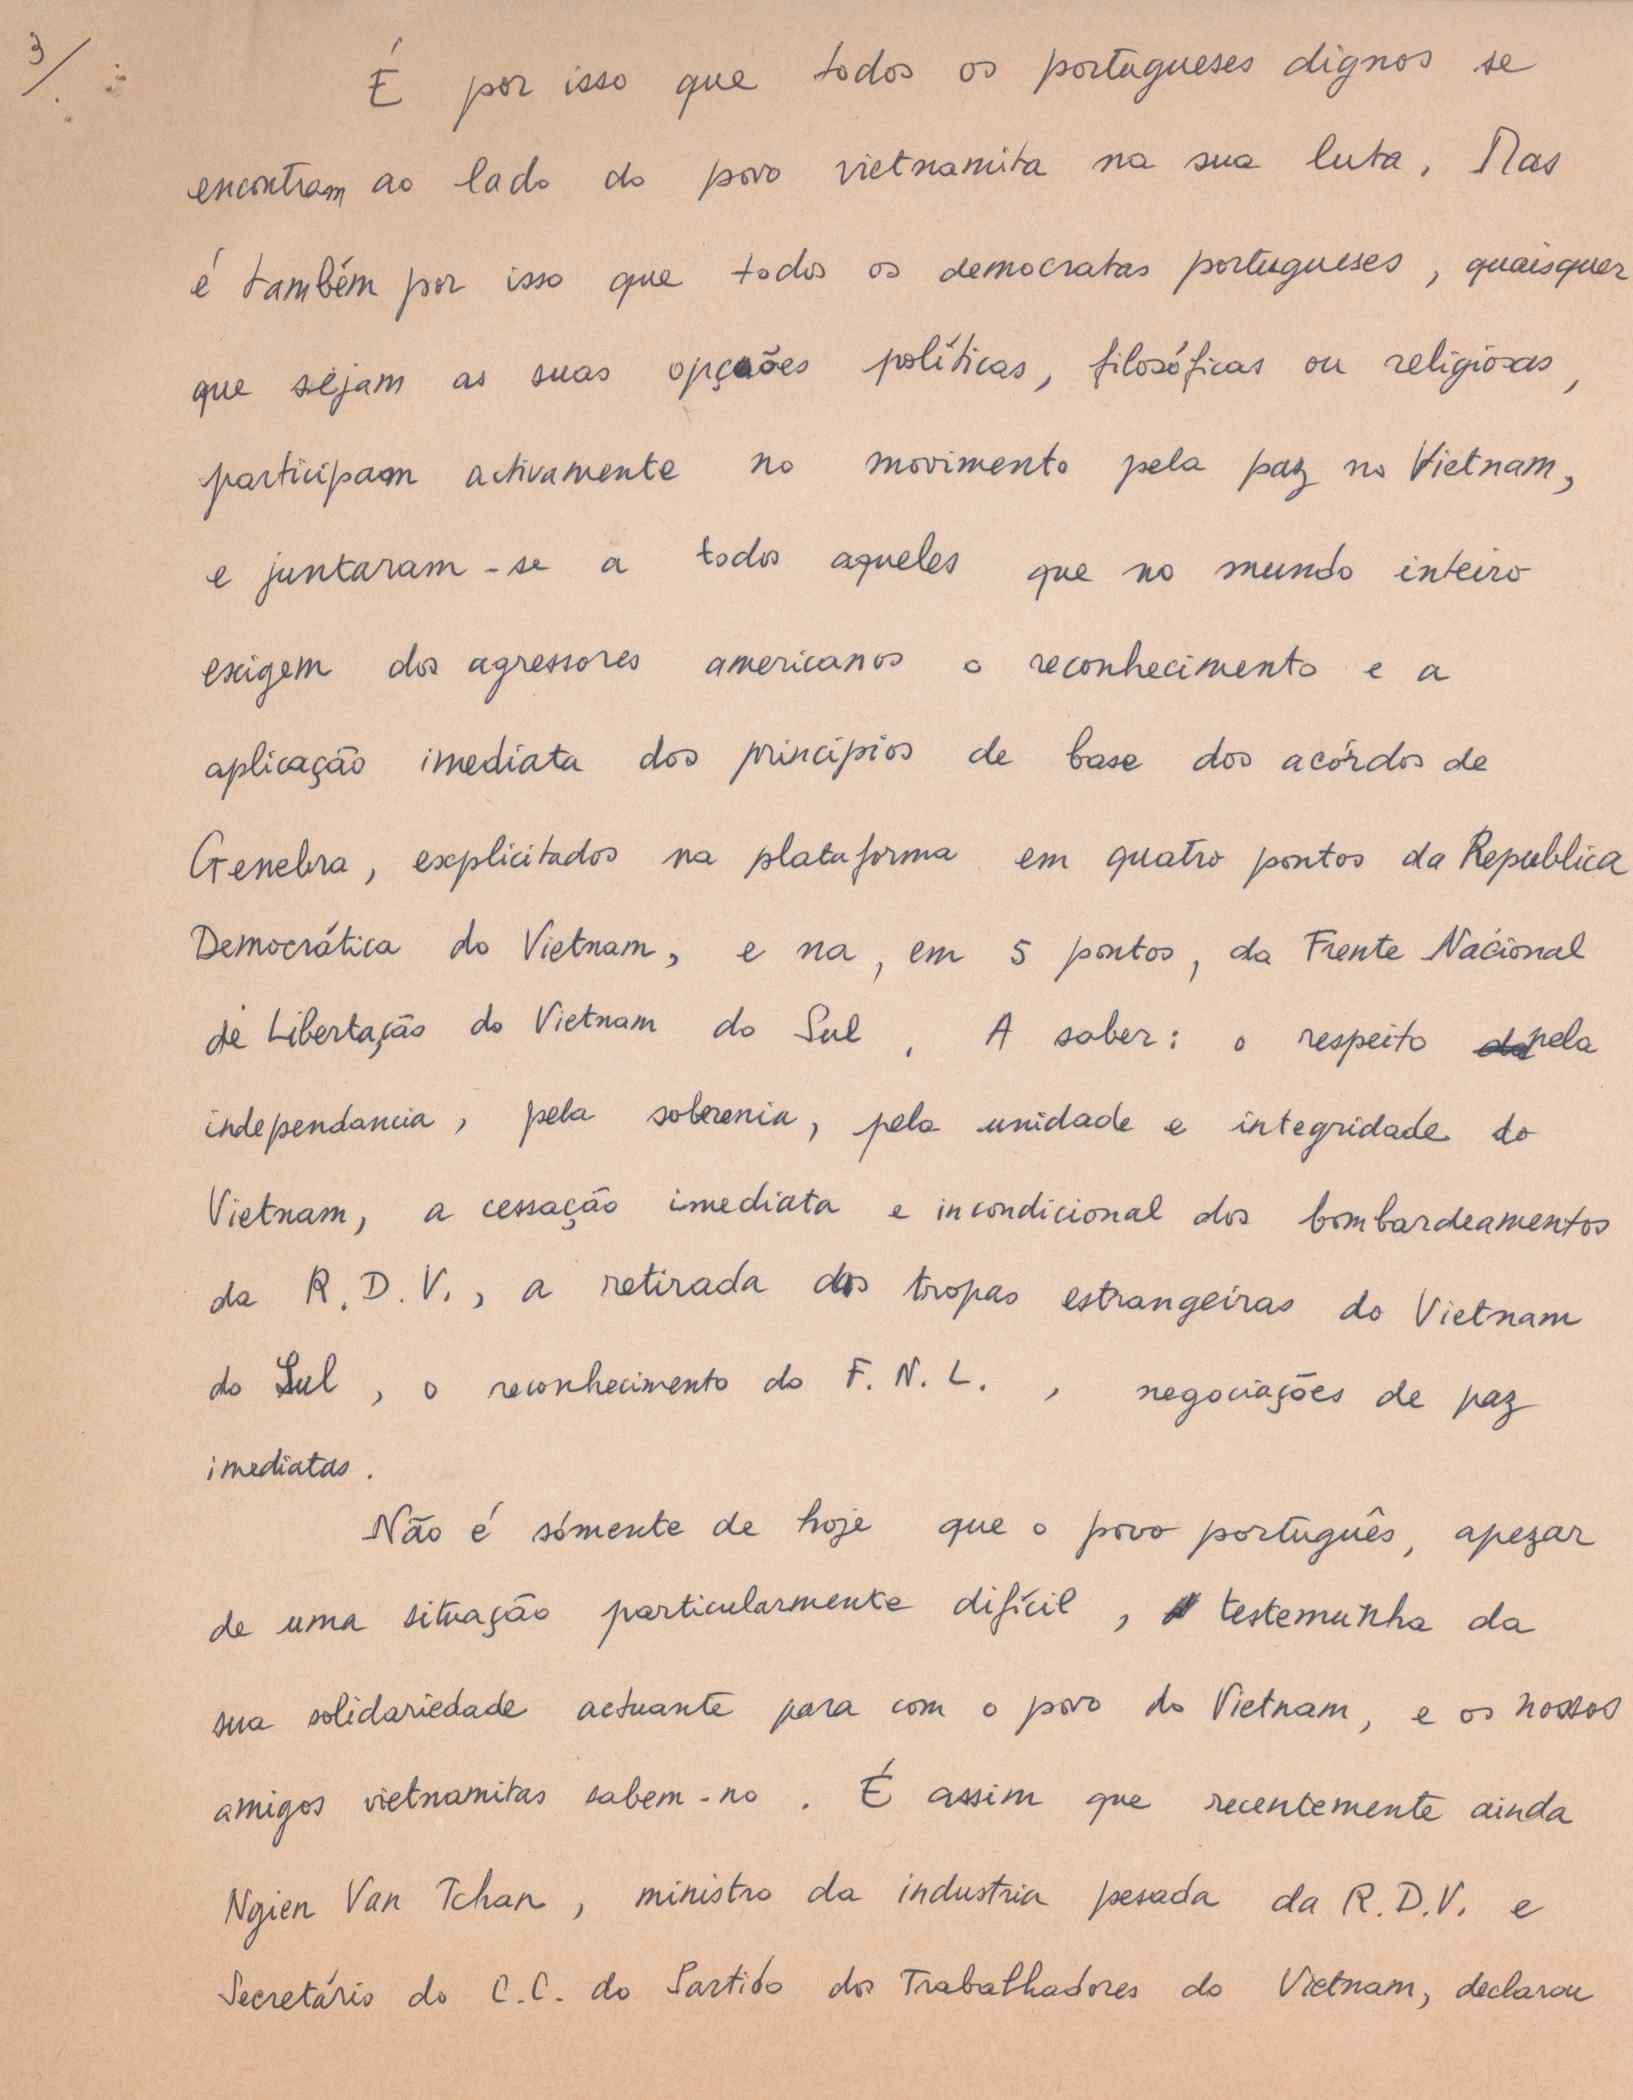 3/.
É por isso que todos os portugueses dignos se
encontram ao lado do povo vietnamita na sua luta. Mas
é também por isso que todos os democratas portugueses, quaisquer
que sejam as suas opções políticas, filosóficas ou religiosas,
participam activamente no movimento pela paz no Vietnam,
e juntaram-se a todos aqueles que no mundo inteiro
exigem dos agressores americanos o reconhecimento e a
aplicação imediata dos princípios de base dos acórdos de
Genebra, explicitados na plataforma em quatro pontos da Republica
Democrática do Vietnam, e na, em 5 pontos, da Frente Nacional
de Libertação do Vietnam do Sul. A saber: o respeito pela
independancia, pela soberenia, pela unidade e integridade do
Vietnam, a cessação imediata e incondicional dos bombardeamentos
da R.D.V., a retirada das tropas estrangeiras do Vietnam
do Sul, o reconhecimento do F.N.L., negociações de paz
imediatas.
Não é sómente de hoje que o povo português, apezar
de uma situação particularmente difícil, testemunha da
sua solidariedade actuante para com o povo do Vietnam, e os nossos
amigos vietnamitas sabem-no. É assim que recentemente ainda
Ngien Van Tchan, ministro da industria pesada da R.D.V. e
Secretário do C.C. do Partido dos Trabalhadores do Vietnam, declarou